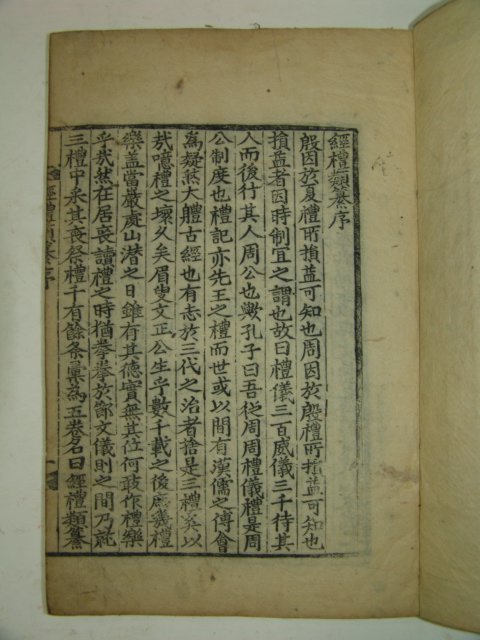 經禮類纂序
殷因於夏禮所損益可知也周因於殷禮所損益可知也
損益者因時制宜之謂也故曰禮儀三百威儀三千待其
人而後行其人周公也歟孔子曰吾從周周禮儀禮是周
公制度也禮記亦先王之禮而世或以間有漢儒之傅會
爲疑然大軆古經也有志於三代之治者捨是三禮奚以
哉噫禮之壞久矣眉叟文正公生乎數千載之後庶幾禮
樂盖當嚴廬山潜之日雖有其德實無其位何敢作禮樂
乎哉然在居喪讀禮之時猶拳拳於節文儀則之間乃就
三禮中采其喪祭禮千有餘条彙為五卷名曰經禮類纂
經禮類纂序
一